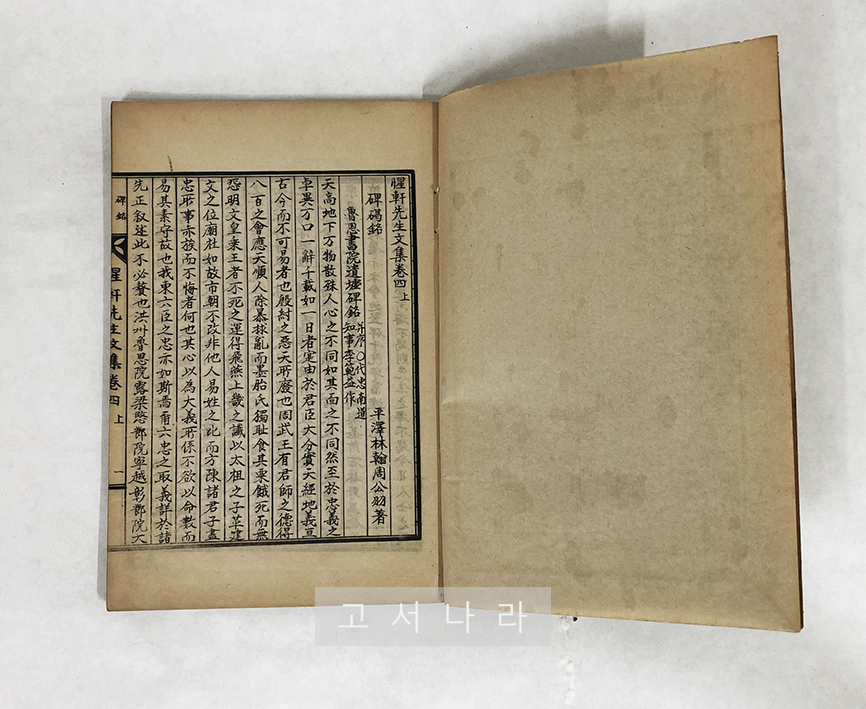 惺軒先生文集卷四 上
平澤林翰周公羽著
碑碣銘
魯恩書院遺墟碑銘 并序○代忠南道知事李範益作
天高地下万物散殊人心之不同如其面之不同然至於忠義之
卓異万口一辭千載如一日者寔由於君臣大分實天經地義亘
古今而不可易者也殷紂之惡天所廢也周武王有君師之德得
八百之會應天順人除暴救亂而墨胎氏獨耻食其粟餓死而無
怨明文皇乘王者不死之運得飛燕上畿之讖以太祖之子革建
文之位廟社如故市朝不改非他人易姓之比而方陳諸君子盡
忠所事赤族而不悔者何也其心以為大義所係不欲以命數而
易其素守故也我東六臣之忠亦如斯焉甭六忠之取義詳於諸
先正叙述此不必贅也洪州魯恩院露梁愍節院寧越彰節院大
碑銘
惺軒先生文集卷四 上
一
고서나라